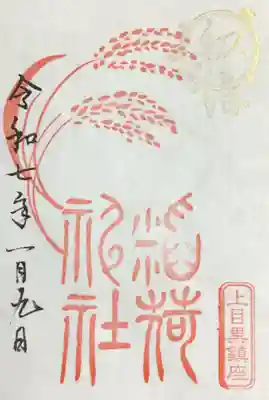 稲荷
神社
上目黒鎮座
令和七年一月九日